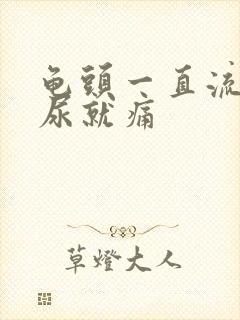 龟頭一直流
尿就痛
草燈大人